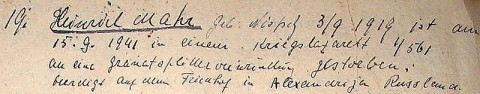 19j Heinrich Mahr geb. 3/9 1919 ist am
15. 9. 1941 in einem Kriegslazarett 4/561
an eine Granatsplitterverwundung gestorben.
beerdigt auf dem Friedhof in Alexandrija Russland.